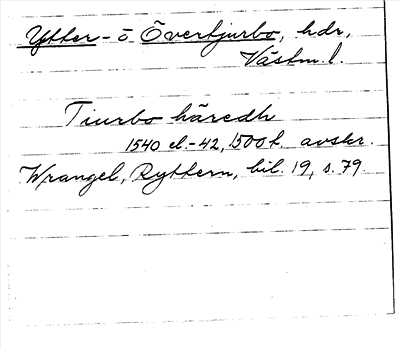 Ytter- o Övertjurbo, hdr,
Västm. l.
Tiurbo häredh
1540 el. -42, 1500 t. avskr.
Wrangel, Ryttern, bil. 19, s. 79.